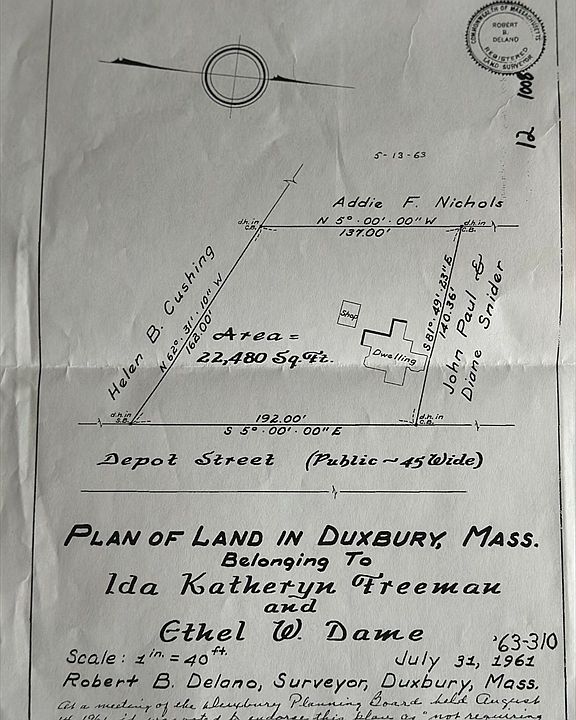 COMMONWEALTH OF MASSACHUSETTS
ROBERT
B.
DELANO
REGISTERED
LAND SURVEYOR
12 1008
5-13-63
Addie F. Nichols
d.h. in
C.B.
N 5°-00'-00" W
137.00'
d.h. in
C.B.
Helen B. Cushing
N 62°-31'-10" W
168.00'
Area =
22,480 Sq. Ft.
Shop
Dwelling
S 81°-49'-23" E
140.36'
John Paul &
Diane Snider
d.h. in
S.B.
192.00'
S 5°-00'-00" E
d.h. in
C.B.
Depot Street (Public ~ 45 Wide)
PLAN OF LAND IN DUXBURY, MASS.
Belonging To
Ida Katheryn Freeman
and
Ethel W. Dame
'63-310
Scale: 1 in. = 40 ft.
July 31, 1961
Robert B. Delano, Surveyor, Duxbury, Mass.
At a meeting of the Duxbury Planning Board held August
to endorse this plan as "not requiring